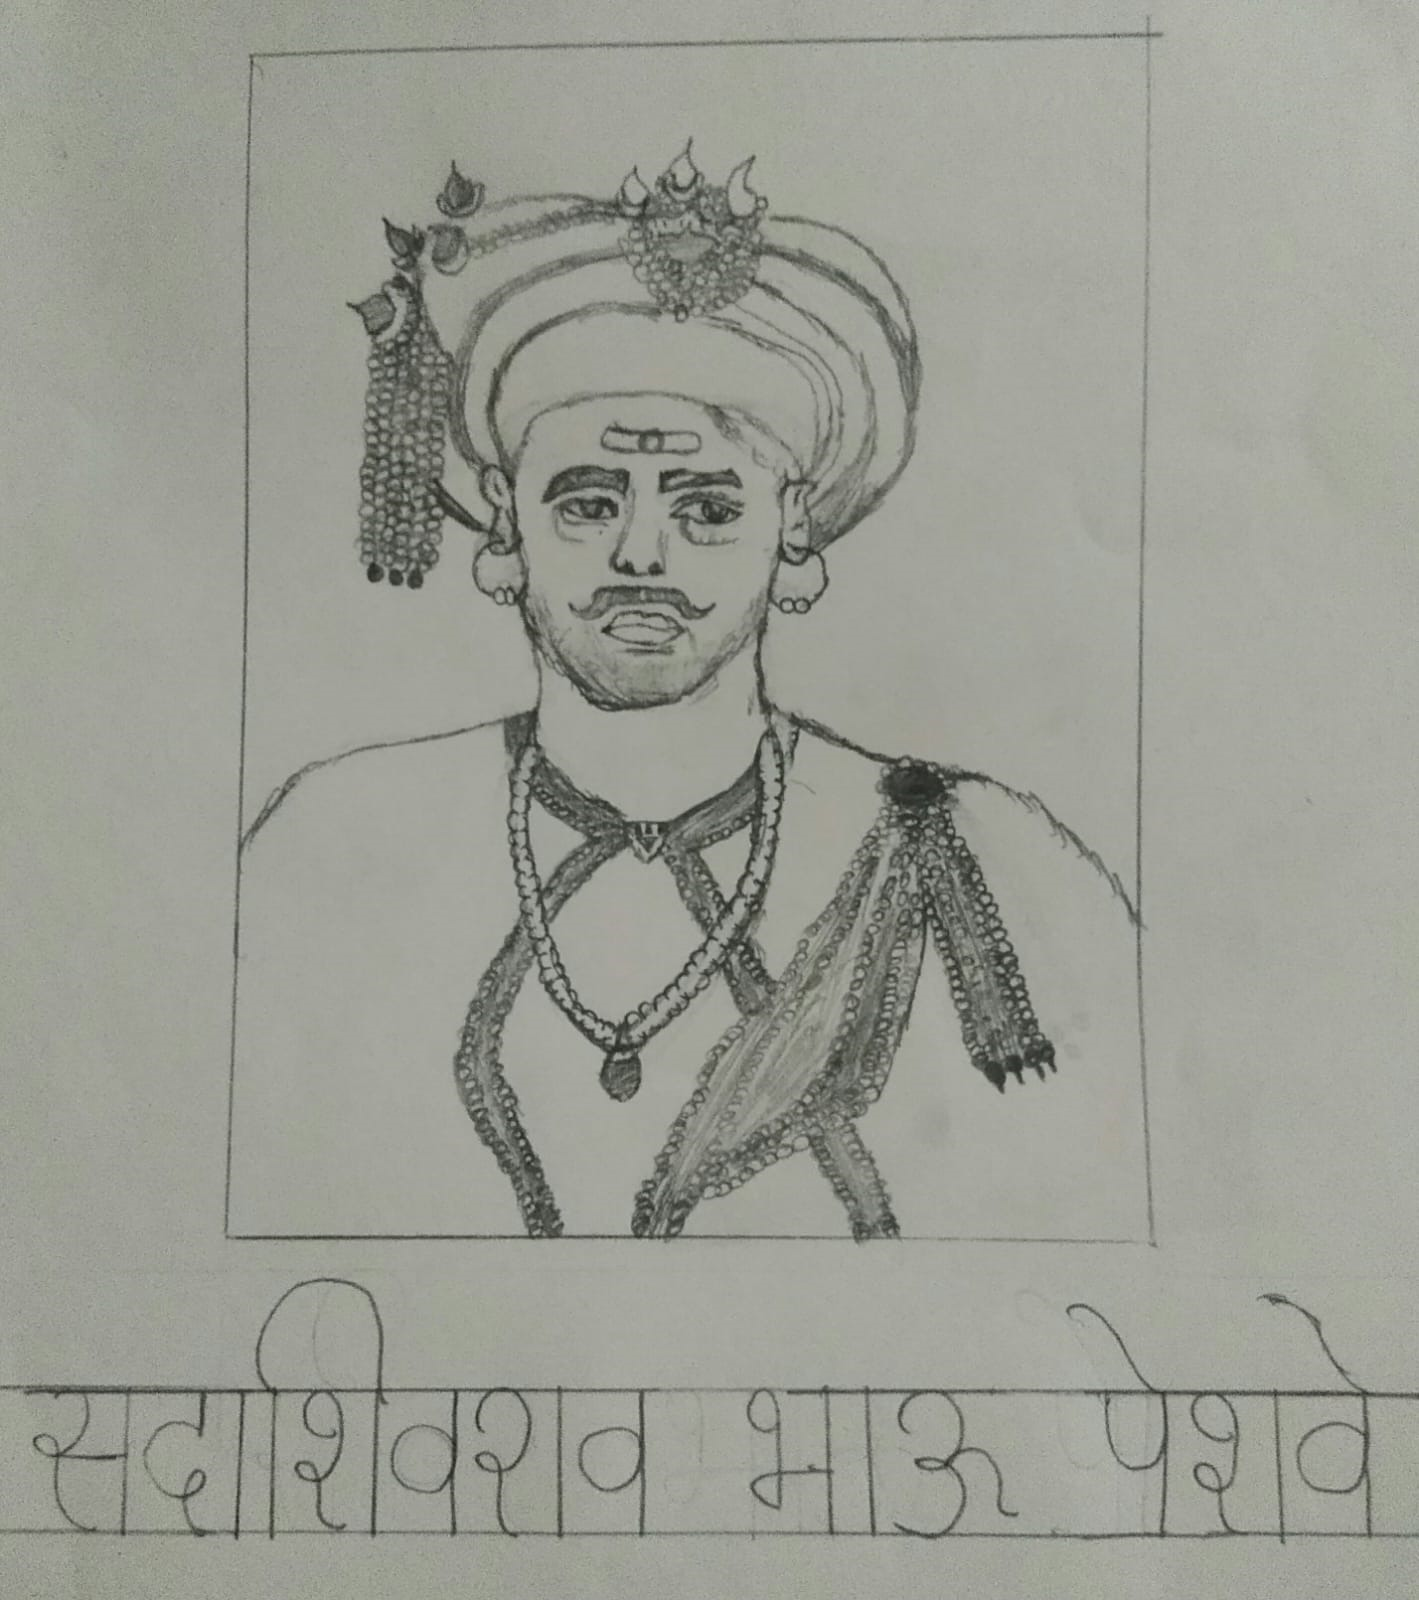 सदाशिवराव भाऊ पेशवे